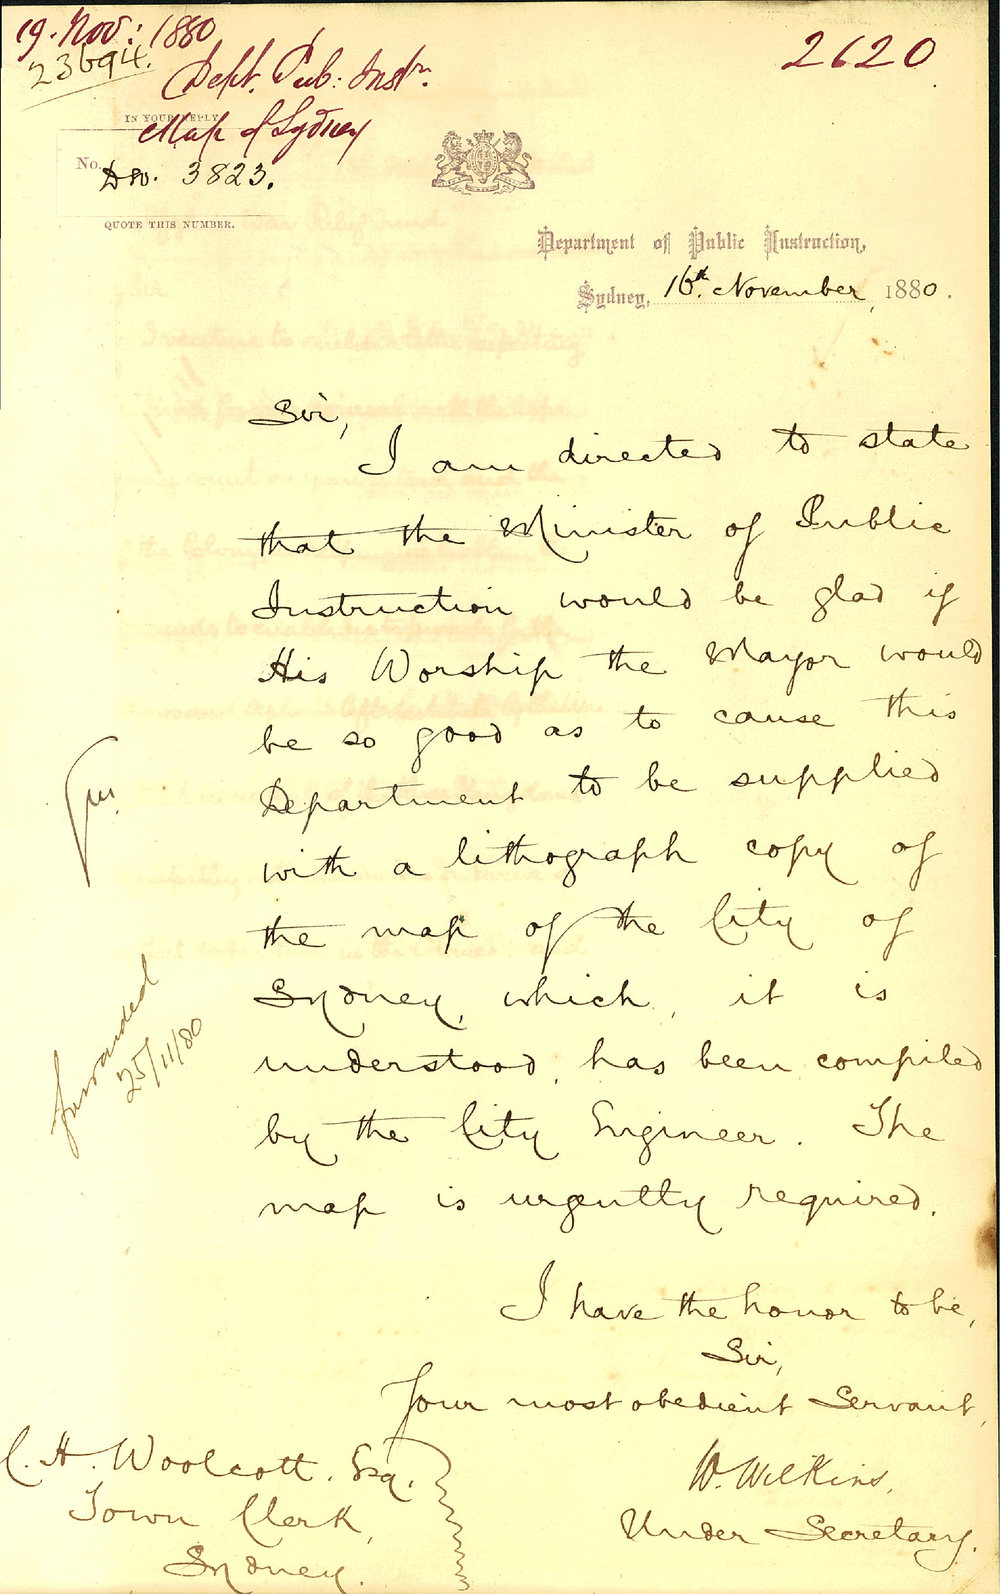 19. Nov: 1880
23694.
Dept. Pub: Instn.
Map of Sydney
2620
IN YOUR REPLY
No. 3823.
QUOTE THIS NUMBER.
Department of Public Instruction,
Sydney, 16th. November, 1880.
Sir,
I am directed to state
that the Minister of Public
Instruction would be glad if
His Worship the Mayor would
be so good as to cause this
Department to be supplied
with a lithograph copy of
the map of the City of
Sydney, which, it is
understood, has been compiled
by the City Engineer. The
map is urgently required.
forwarded
25/11/80
I have the honor to be,
Sir,
Your most obedient Servant,
W. Wilkins,
Under Secretary.
C. H. Woolcott. Esq.
Town Clerk,
Sydney.